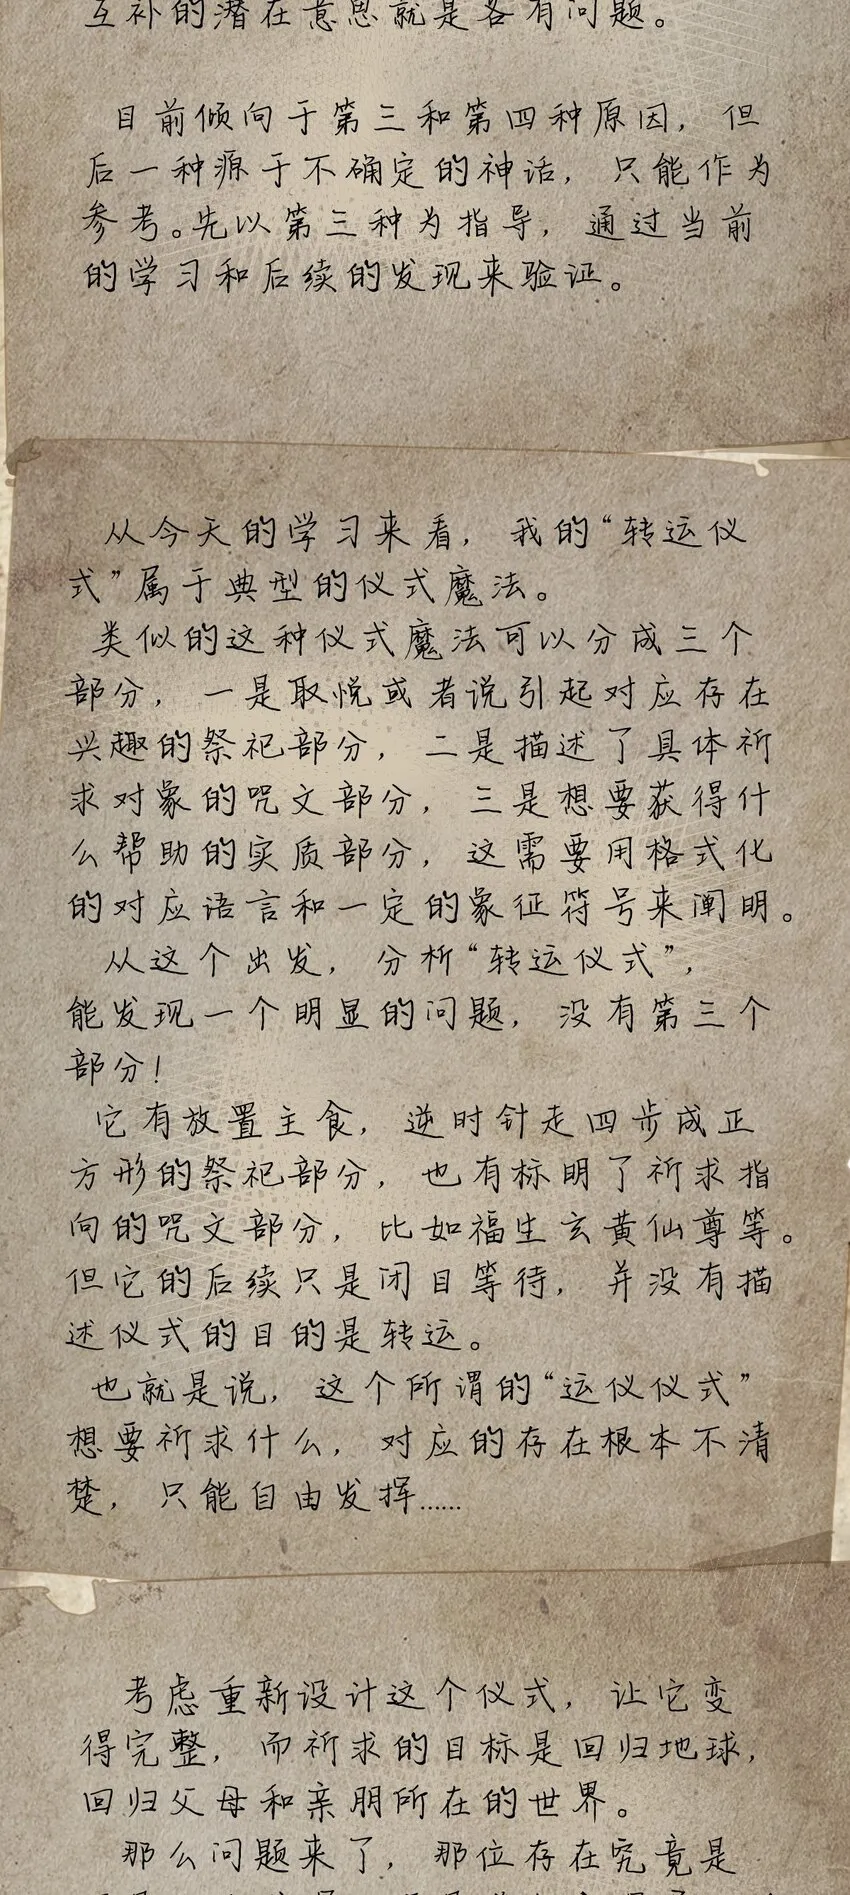 互补的潜在意思就是各有问题。
目前倾向于第三和第四种原因，但
后一种源于不确定的神话，只能作为
参考。先以第三种为指导，通过当前
的学习和后续的发现来验证。
从今天的学习来看，我的“转运仪
式”属于典型的仪式魔法。
类似的这种仪式魔法可以分成三个
部分，一是取悦或者说引起对应存在
兴趣的祭祀部分，二是描述了具体祈
求对象的咒文部分，三是想要获得什
么帮助的实质部分，这需要用格式化
的对应语言和一定的象征符号来阐明。
从这个出发，分析“转运仪式”，
能发现一个明显的问题，没有第三个
部分！
它有放置主食，逆时针走四步成正
方形的祭祀部分，也有标明了祈求指
向的咒文部分，比如福生玄黄仙尊等。
但它的后续只是闭目等待，并没有描
述仪式的目的是转运。
也就是说，这个所谓的“运仪仪式”
想要祈求什么，对应的存在根本不清
楚，只能自由发挥……
考虑重新设计这个仪式，让它变
得完整，而祈求的目标是回归地球，
回归父母和亲朋所在的世界。
那么问题来了，那位存在究竟是